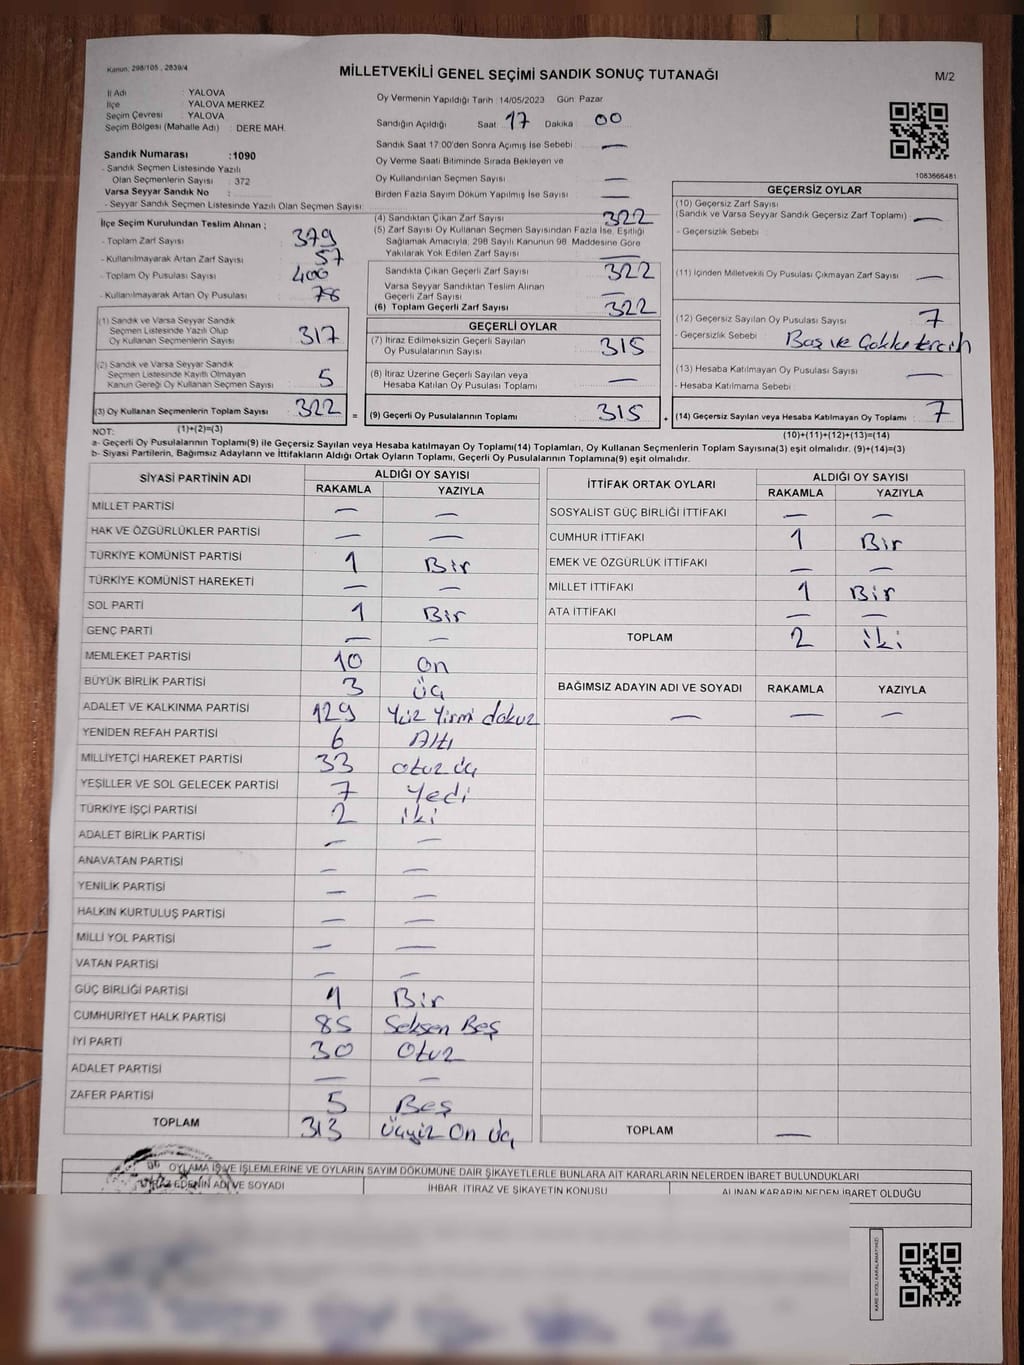 Kanun: 298/105 , 2839/4
MİLLETVEKİLİ GENEL SEÇİMİ SANDIK SONUÇ TUTANAĞI
M/2
İl Adı : YALOVA
İlçe : YALOVA MERKEZ
Seçim Çevresi : YALOVA
Seçim Bölgesi (Mahalle Adı) : DERE MAH.
Oy Vermenin Yapıldığı Tarih : 14/05/2023 Gün Pazar
Sandığın Açıldığı Saat 17 Dakika 00
Sandık Saat 17:00'den Sonra Açımış İse Sebebi : —
Oy Verme Saati Bitiminde Sırada Bekleyen ve
Oy Kullandırılan Seçmen Sayısı : —
Birden Fazla Sayım Döküm Yapılmış İse Sayısı : —
1083666481
Sandık Numarası :1090
- Sandık Seçmen Listesinde Yazılı
Olan Seçmenlerin Sayısı : 372
Varsa Seyyar Sandık No :
- Seyyar Sandık Seçmen Listesinde Yazılı Olan Seçmen Sayısı:
İlçe Seçim Kurulundan Teslim Alınan ;
- Toplam Zarf Sayısı 379
- Kullanılmayarak Artan Zarf Sayısı : 57
- Toplam Oy Pusulası Sayısı : 400
- Kullanılmayarak Artan Oy Pusulası : 78
(1) Sandık ve Varsa Seyyar Sandık
Seçmen Listesinde Yazılı Olup
Oy Kullanan Seçmenlerin Sayısı : 317
(2) Sandık ve Varsa Seyyar Sandık
Seçmen Listesinde Kayıtlı Olmayan
Kanun Gereği Oy Kullanan Seçmen Sayısı : 5
(3) Oy Kullanan Seçmenlerin Toplam Sayısı : 322
(1)+(2)=(3)
(4) Sandıktan Çıkan Zarf Sayısı : 322
(5) Zarf Sayısı Oy Kullanan Seçmen Sayısından Fazla İse, Eşitliği
Sağlamak Amacıyla; 298 Sayılı Kanunun 98. Maddesine Göre
Yakılarak Yok Edilen Zarf Sayısı : —
Sandıkta Çıkan Geçerli Zarf Sayısı : 322
Varsa Seyyar Sandıktan Teslim Alınan
Geçerli Zarf Sayısı : —
(6) Toplam Geçerli Zarf Sayısı : 322
GEÇERLİ OYLAR
(7) İtiraz Edilmeksizin Geçerli Sayılan
Oy Pusulalarının Sayısı : 315
(8) İtiraz Üzerine Geçerli Sayılan veya
Hesaba Katılan Oy Pusulası Toplamı : —
= (9) Geçerli Oy Pusulalarının Toplamı : 315
GEÇERSİZ OYLAR
(10) Geçersiz Zarf Sayısı
(Sandık ve Varsa Seyyar Sandık Geçersiz Zarf Toplamı) : —
- Geçersizlik Sebebi :
(11) İçinden Milletvekili Oy Pusulası Çıkmayan Zarf Sayısı : —
(12) Geçersiz Sayılan Oy Pusulası Sayısı : 7
- Geçersizlik Sebebi : Boş ve Çoklu tercih
(13) Hesaba Katılmayan Oy Pusulası Sayısı : —
- Hesaba Katılmama Sebebi :
(14) Geçersiz Sayılan veya Hesaba Katılmayan Oy Toplamı : 7
(10)+(11)+(12)+(13)=(14)
NOT:
a- Geçerli Oy Pusulalarının Toplamı(9) ile Geçersiz Sayılan veya Hesaba katılmayan Oy Toplamı(14) Toplamları, Oy Kullanan Seçmenlerin Toplam Sayısına(3) eşit olmalıdır. (9)+(14)=(3)
b- Siyasi Partilerin, Bağımsız Adayların ve İttifakların Aldığı Ortak Oyların Toplamı, Geçerli Oy Pusulalarının Toplamına(9) eşit olmalıdır.
SİYASİ PARTİNİN ADI ALDIĞI OY SAYISI
RAKAMLA YAZIYLA
MİLLET PARTİSİ — —
HAK VE ÖZGÜRLÜKLER PARTİSİ — —
TÜRKİYE KOMÜNİST PARTİSİ 1 Bir
TÜRKİYE KOMÜNİST HAREKETİ — —
SOL PARTİ 1 Bir
GENÇ PARTİ — —
MEMLEKET PARTİSİ 10 On
BÜYÜK BİRLİK PARTİSİ 3 üç
ADALET VE KALKINMA PARTİSİ 129 Yüz Yirmi dokuz
YENİDEN REFAH PARTİSİ 6 Altı
MİLLİYETÇİ HAREKET PARTİSİ 33 otuz üç
YEŞİLLER VE SOL GELECEK PARTİSİ 7 Yedi
TÜRKİYE İŞÇİ PARTİSİ 2 iki
ADALET BİRLİK PARTİSİ — —
ANAVATAN PARTİSİ — —
YENİLİK PARTİSİ — —
HALKIN KURTULUŞ PARTİSİ — —
MİLLİ YOL PARTİSİ — —
VATAN PARTİSİ — —
GÜÇ BİRLİĞİ PARTİSİ 1 Bir
CUMHURİYET HALK PARTİSİ 85 Seksen Beş
İYİ PARTİ 30 Otuz
ADALET PARTİSİ — —
ZAFER PARTİSİ 5 Beş
TOPLAM 313 üçyüz On üç
İTTİFAK ORTAK OYLARI ALDIĞI OY SAYISI
RAKAMLA YAZIYLA
SOSYALİST GÜÇ BİRLİĞİ İTTİFAKI — —
CUMHUR İTTİFAKI 1 Bir
EMEK VE ÖZGÜRLÜK İTTİFAKI — —
MİLLET İTTİFAKI 1 Bir
ATA İTTİFAKI — —
TOPLAM 2 iki
BAĞIMSIZ ADAYIN ADI VE SOYADI RAKAMLA YAZIYLA
— — —
TOPLAM —
OYLAMA İŞ VE İŞLEMLERİNE VE OYLARIN SAYIM DÖKÜMÜNE DAİR ŞİKAYETLERLE BUNLARA AİT KARARLARIN NELERDEN İBARET BULUNDUKLARI
İTİRAZ EDENİN ADI VE SOYADI İHBAR, İTİRAZ VE ŞİKAYETİN KONUSU ALINAN KARARIN NEDEN İBARET OLDUĞU
KARE KODU KARALAMAYINIZ!